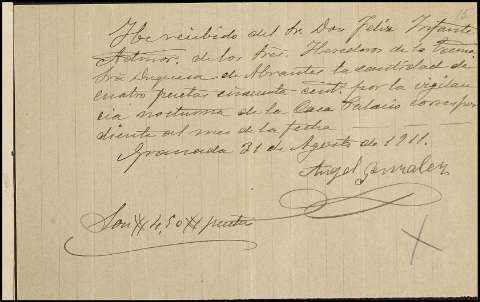 He recibido del Sr. Don Felix Infante
Admor. de los Sres. Herederos de la Excma
Sra Duquesa de Abrantes la cantidad de
cuatro pesetas cincuenta cent. por la vigilan
cia nocturna de la Casa Palacio correspon
diente al mes de la fecha
Granada 31 de Agosto de 1911.
Angel Gonzalez
Son # 4,50 # pesetas